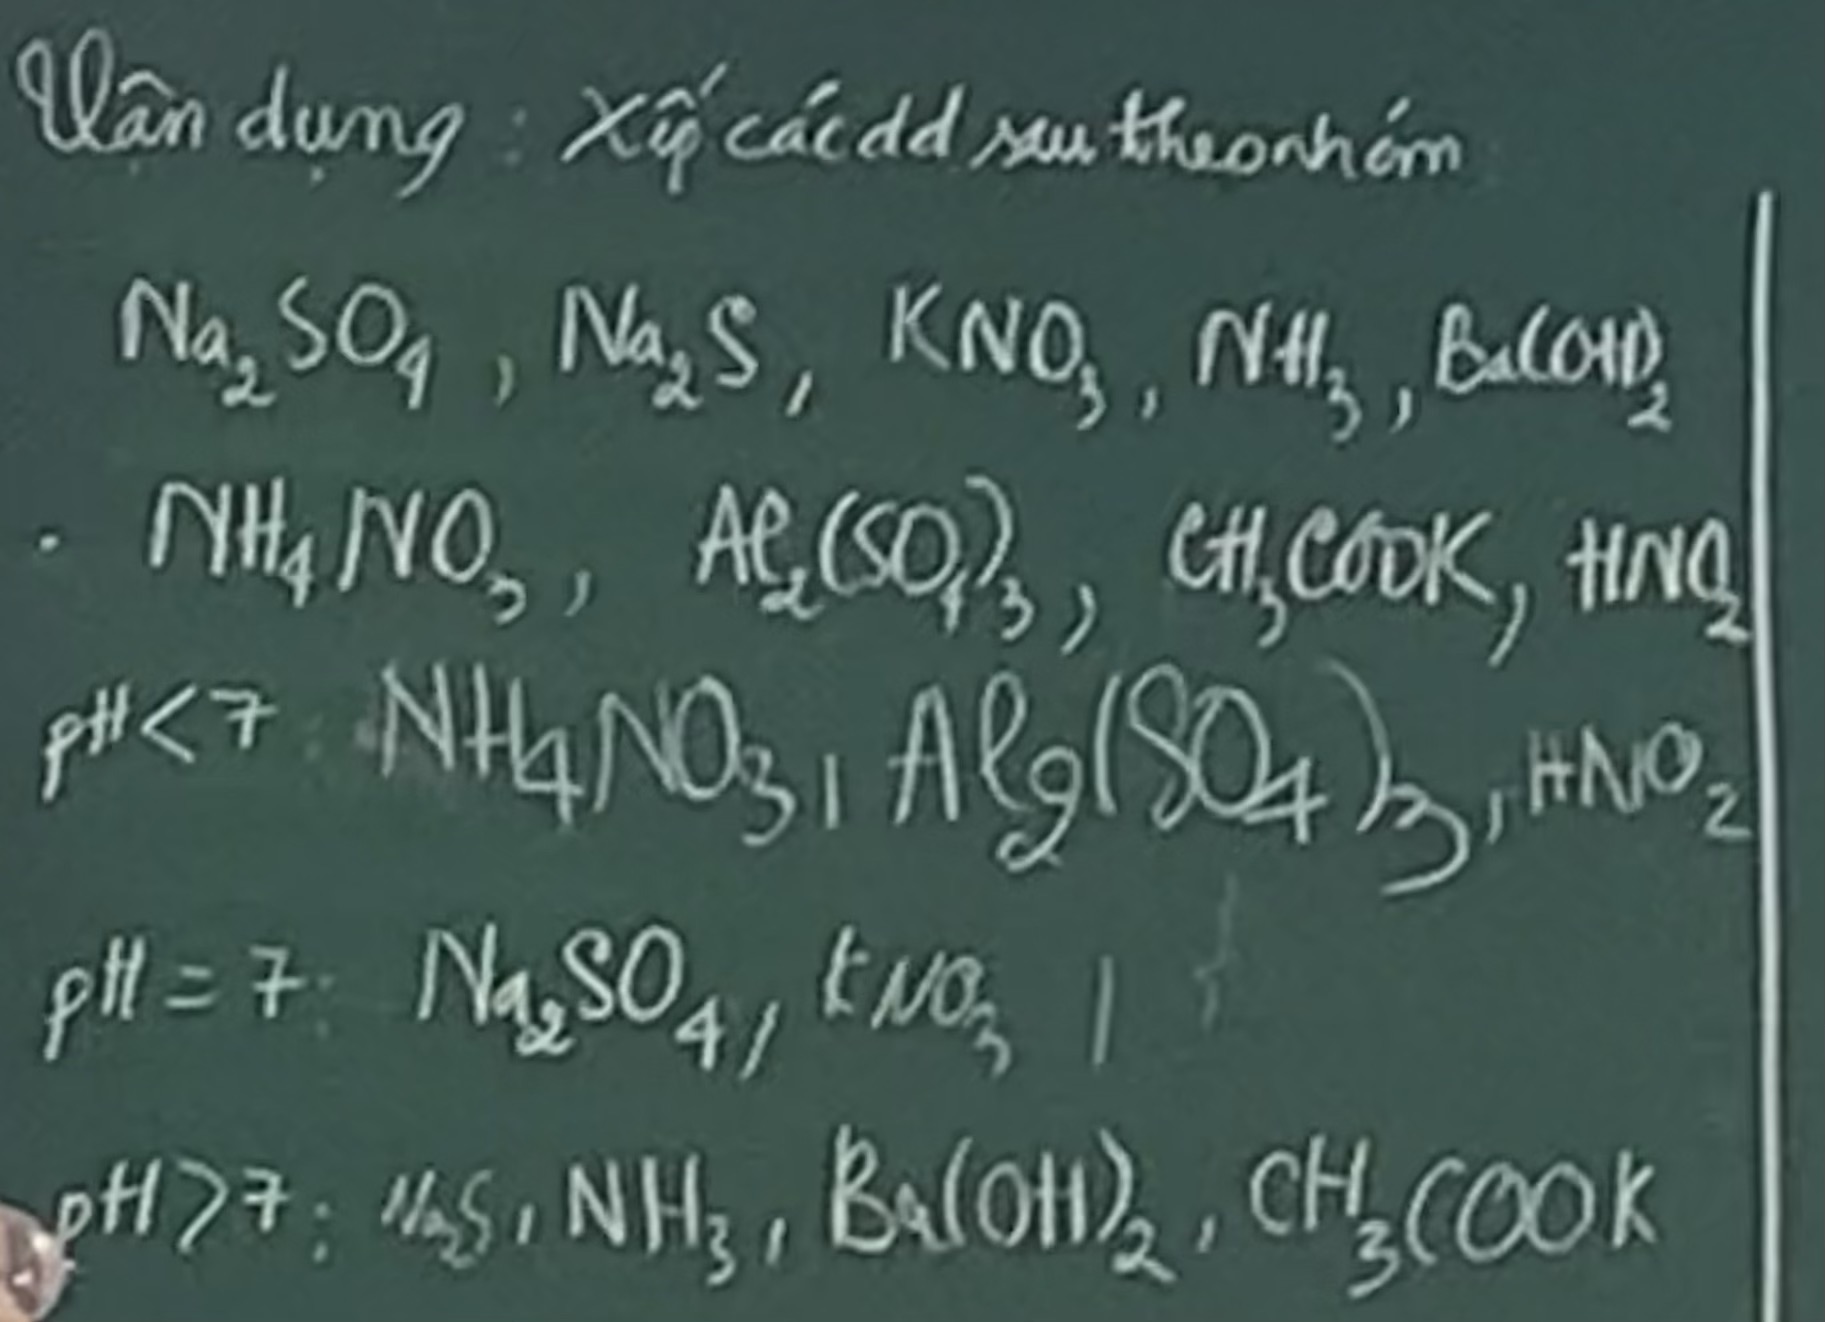 Vận dụng : Xếp các dd sau theo nhóm
Na₂SO₄, Na₂S, KNO₃, NH₃, Ba(OH)₂
· NH₄NO₃, Al₂(SO₄)₃, CH₃COOK, HNO₂
pH<7: NH₄NO₃, Al₂(SO₄)₃, HNO₂
pH=7: Na₂SO₄, KNO₃,
pH>7: Na₂S, NH₃, Ba(OH)₂, CH₃COOK